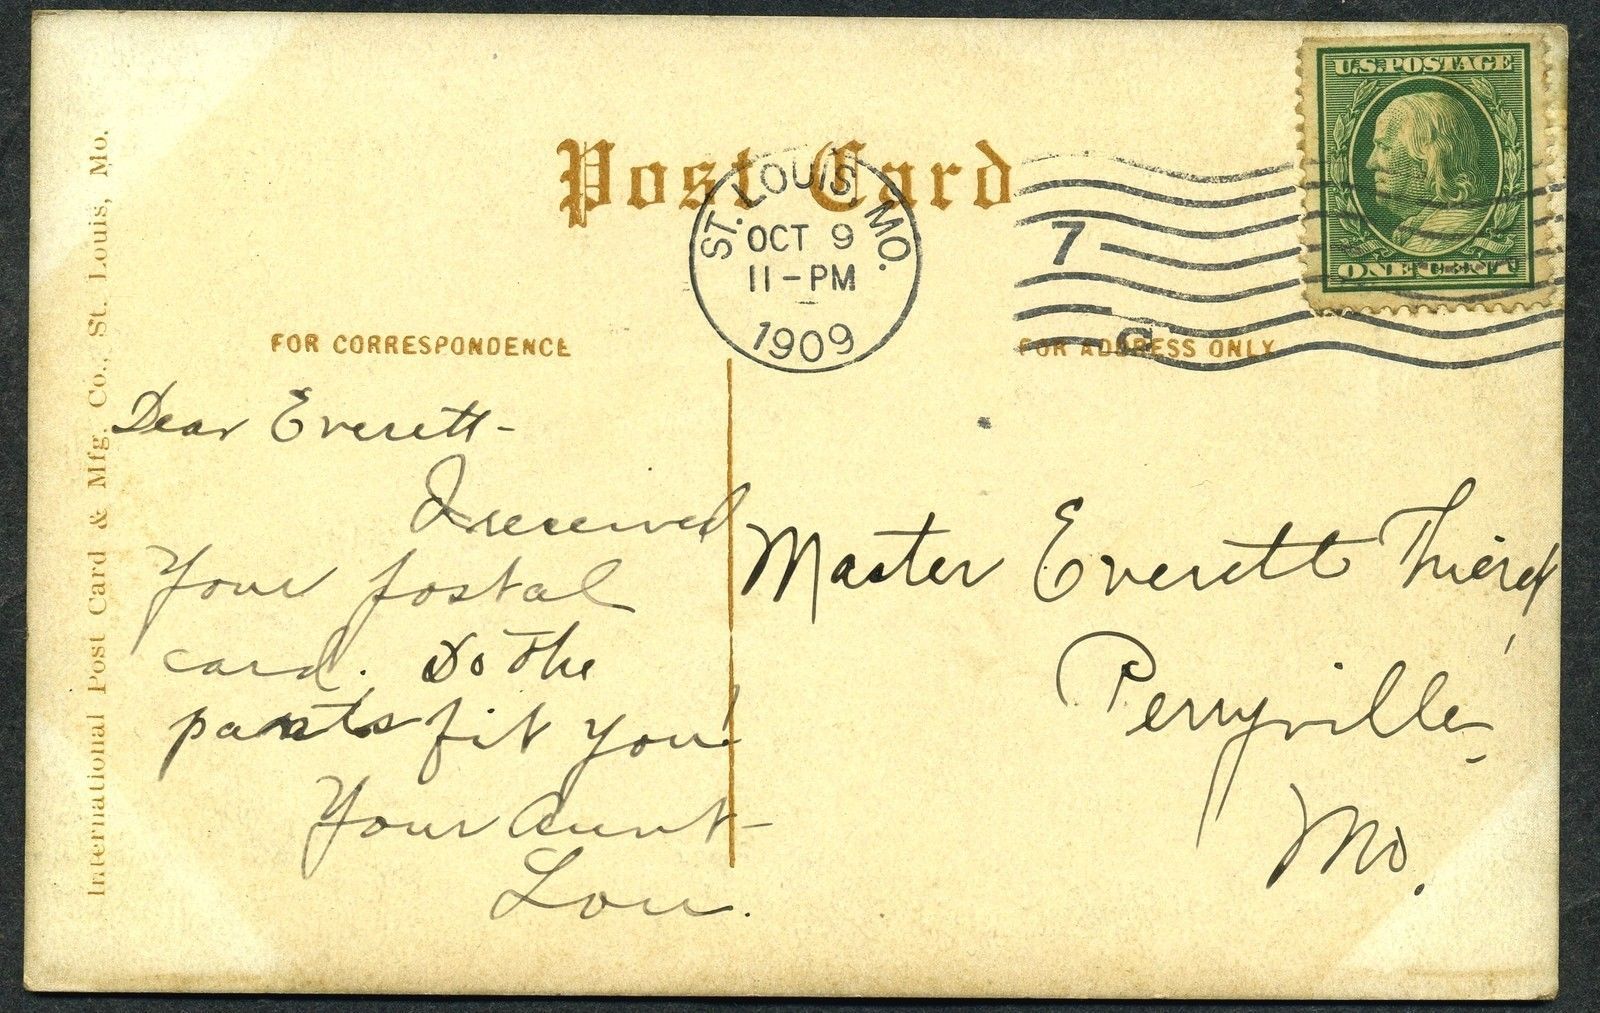 U.S. POSTAGE
ONE CENT
Post Card
ST. LOUIS, MO.
OCT 9
11-PM
1909
7
C
FOR CORRESPONDENCE
FOR ADDRESS ONLY
International Post Card & Mfg. Co., St. Louis, Mo.
Dear Everett-
I received
Your postal
card. Do the
pants fit you!
Your Aunt-
Lou.
Master Everett
Perryville,
Mo.